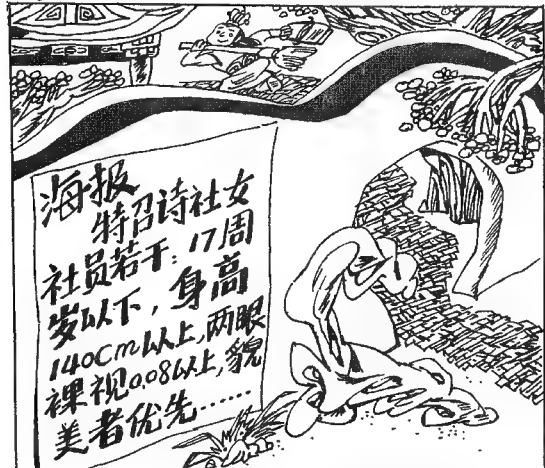 海报
特招诗社女
社员若干：17周
岁以下，身高
140cm以上，两眼
裸视0.08以上，貌
美者优先……